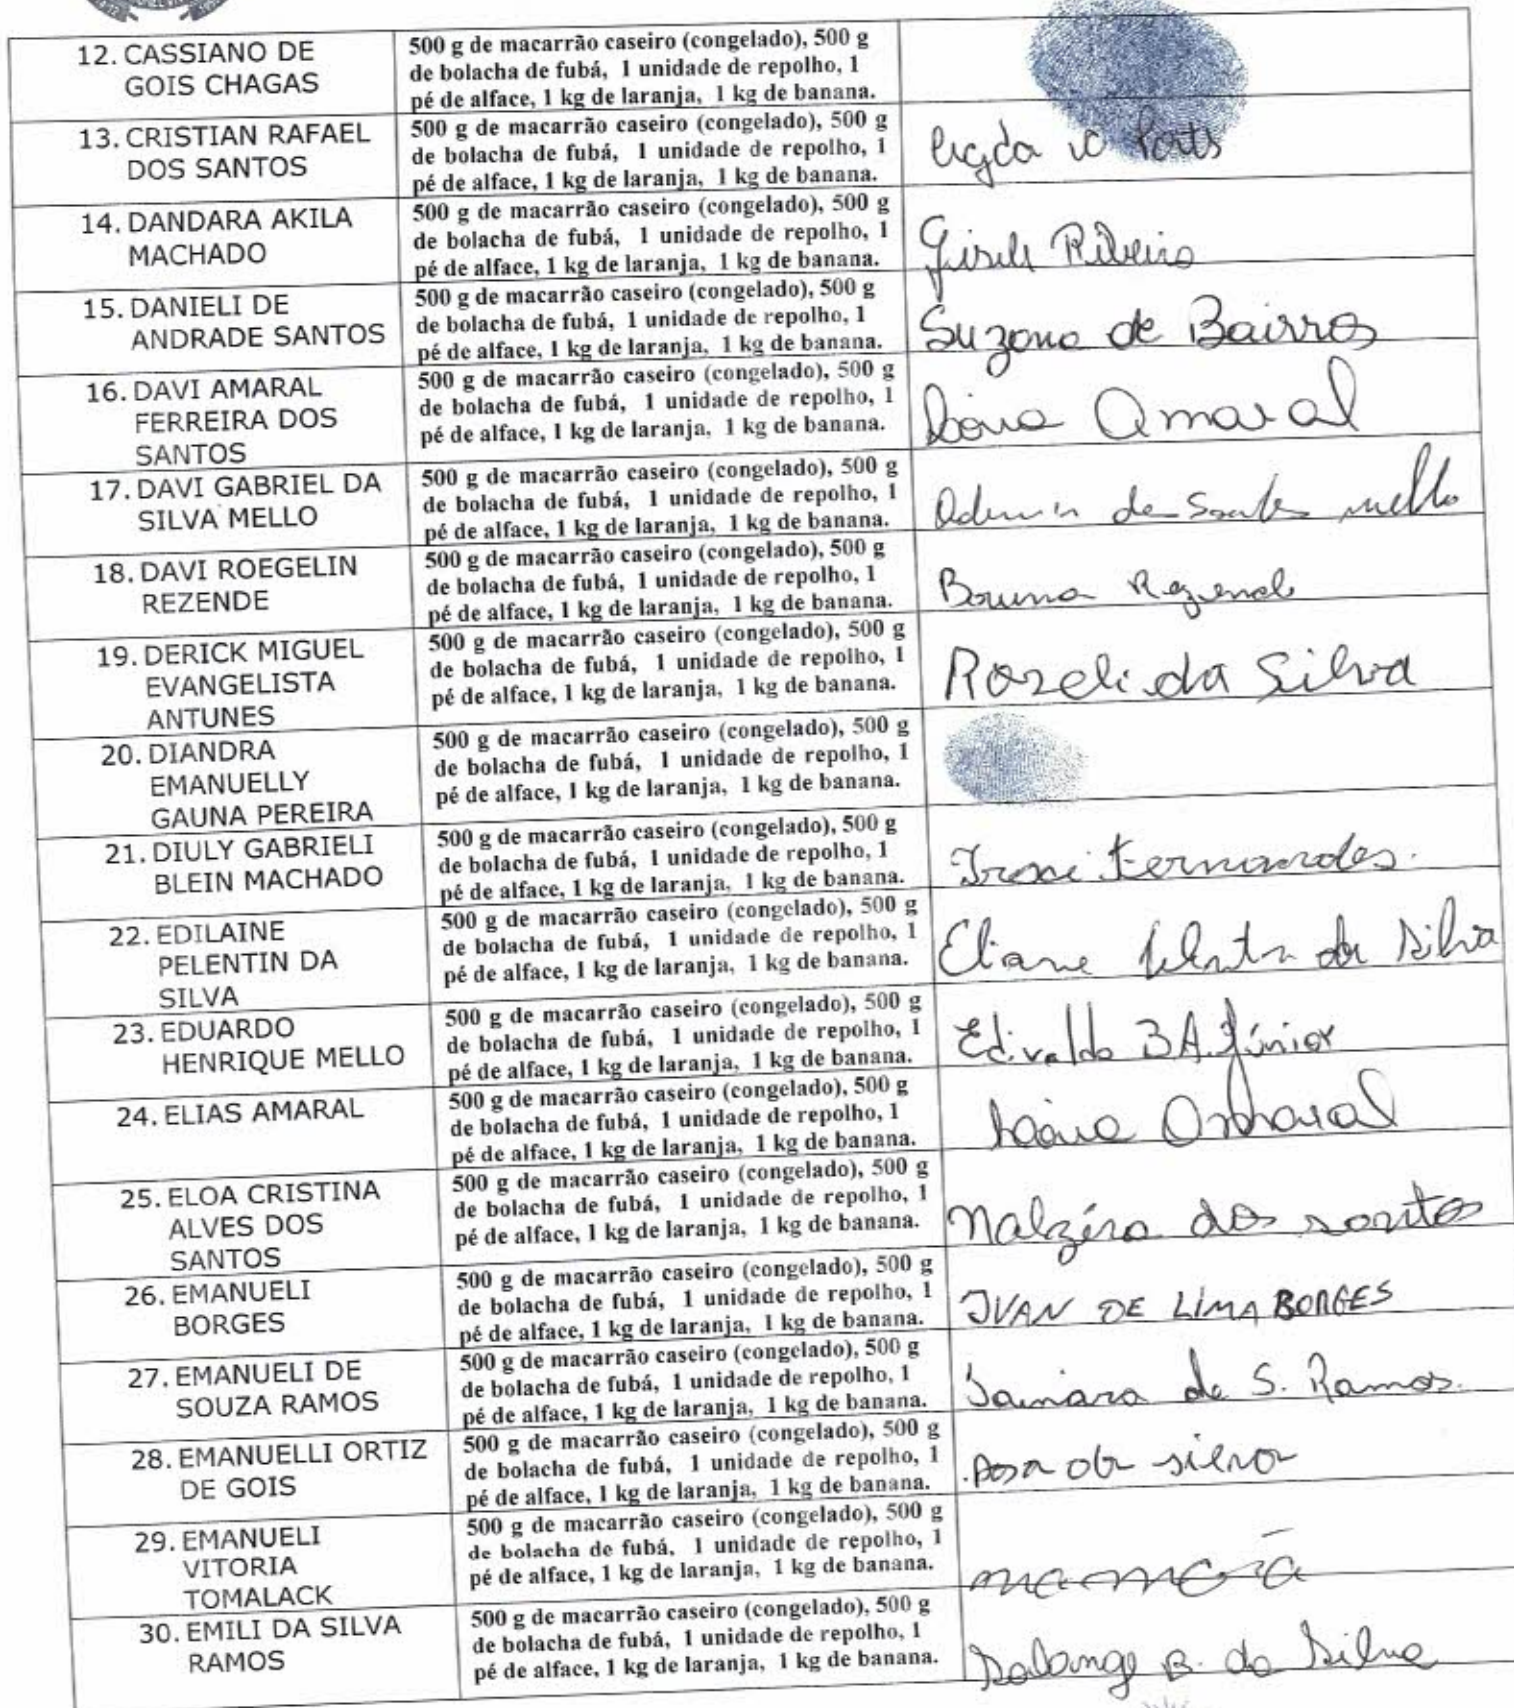 12. CASSIANO DE
GOIS CHAGAS
500 g de macarrão caseiro (congelado), 500 g
de bolacha de fubá, 1 unidade de repolho, 1
pé de alface, 1 kg de laranja, 1 kg de banana.
13. CRISTIAN RAFAEL
DOS SANTOS
500 g de macarrão caseiro (congelado), 500 g
de bolacha de fubá, 1 unidade de repolho, 1
pé de alface, 1 kg de laranja, 1 kg de banana.
14. DANDARA AKILA
MACHADO
500 g de macarrão caseiro (congelado), 500 g
de bolacha de fubá, 1 unidade de repolho, 1
pé de alface, 1 kg de laranja, 1 kg de banana.
Ribeiro
15. DANIELI DE
ANDRADE SANTOS
500 g de macarrão caseiro (congelado), 500 g
de bolacha de fubá, 1 unidade de repolho, 1
pé de alface, 1 kg de laranja, 1 kg de banana.
Suzana de Bairros
16. DAVI AMARAL
FERREIRA DOS
SANTOS
500 g de macarrão caseiro (congelado), 500 g
de bolacha de fubá, 1 unidade de repolho, 1
pé de alface, 1 kg de laranja, 1 kg de banana.
Amaral
17. DAVI GABRIEL DA
SILVA MELLO
500 g de macarrão caseiro (congelado), 500 g
de bolacha de fubá, 1 unidade de repolho, 1
pé de alface, 1 kg de laranja, 1 kg de banana.
mello
18. DAVI ROEGELIN
REZENDE
500 g de macarrão caseiro (congelado), 500 g
de bolacha de fubá, 1 unidade de repolho, 1
pé de alface, 1 kg de laranja, 1 kg de banana.
19. DERICK MIGUEL
EVANGELISTA
ANTUNES
500 g de macarrão caseiro (congelado), 500 g
de bolacha de fubá, 1 unidade de repolho, 1
pé de alface, 1 kg de laranja, 1 kg de banana.
Rozeli da Silva
20. DIANDRA
EMANUELLY
GAUNA PEREIRA
500 g de macarrão caseiro (congelado), 500 g
de bolacha de fubá, 1 unidade de repolho, 1
pé de alface, 1 kg de laranja, 1 kg de banana.
21. DIULY GABRIELI
BLEIN MACHADO
500 g de macarrão caseiro (congelado), 500 g
de bolacha de fubá, 1 unidade de repolho, 1
pé de alface, 1 kg de laranja, 1 kg de banana.
Fernandes.
22. EDILAINE
PELENTIN DA
SILVA
500 g de macarrão caseiro (congelado), 500 g
de bolacha de fubá, 1 unidade de repolho, 1
pé de alface, 1 kg de laranja, 1 kg de banana.
Eliane da Silva
23. EDUARDO
HENRIQUE MELLO
500 g de macarrão caseiro (congelado), 500 g
de bolacha de fubá, 1 unidade de repolho, 1
pé de alface, 1 kg de laranja, 1 kg de banana.
Edivaldo B A. Júnior
24. ELIAS AMARAL
500 g de macarrão caseiro (congelado), 500 g
de bolacha de fubá, 1 unidade de repolho, 1
pé de alface, 1 kg de laranja, 1 kg de banana.
Amaral
25. ELOA CRISTINA
ALVES DOS
SANTOS
500 g de macarrão caseiro (congelado), 500 g
de bolacha de fubá, 1 unidade de repolho, 1
pé de alface, 1 kg de laranja, 1 kg de banana.
Nalzira dos santos
26. EMANUELI
BORGES
500 g de macarrão caseiro (congelado), 500 g
de bolacha de fubá, 1 unidade de repolho, 1
pé de alface, 1 kg de laranja, 1 kg de banana.
IVAN DE LIMA BORGES
27. EMANUELI DE
SOUZA RAMOS
500 g de macarrão caseiro (congelado), 500 g
de bolacha de fubá, 1 unidade de repolho, 1
pé de alface, 1 kg de laranja, 1 kg de banana.
de S. Ramos.
28. EMANUELLI ORTIZ
DE GOIS
500 g de macarrão caseiro (congelado), 500 g
de bolacha de fubá, 1 unidade de repolho, 1
pé de alface, 1 kg de laranja, 1 kg de banana.
da silva
29. EMANUELI
VITORIA
TOMALACK
500 g de macarrão caseiro (congelado), 500 g
de bolacha de fubá, 1 unidade de repolho, 1
pé de alface, 1 kg de laranja, 1 kg de banana.
30. EMILI DA SILVA
RAMOS
500 g de macarrão caseiro (congelado), 500 g
de bolacha de fubá, 1 unidade de repolho, 1
pé de alface, 1 kg de laranja, 1 kg de banana.
B. da Silva